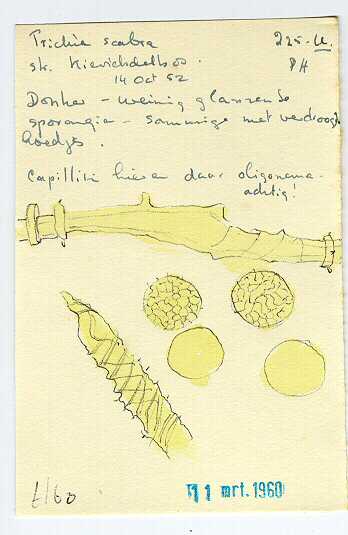 Trichia scabra 225-U.
st. Kievichdelbos. PH
14 Oct 52
Donker - weinig glanzende
sporangia - sommige met verdroogde
hoedjes.
Capillitii hier en daar oligonema-
achtig!
t/60
11 mrt. 1960